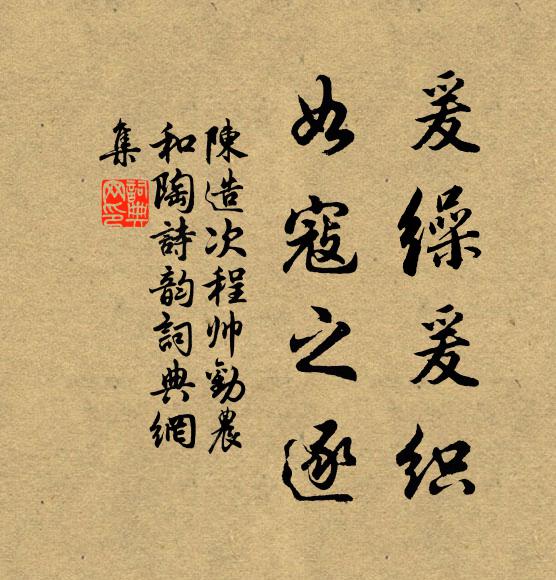 爰缲爰织
如寇之逐
陳造次程帅勸農
和陶詩韵詞典網
集
詞典网印